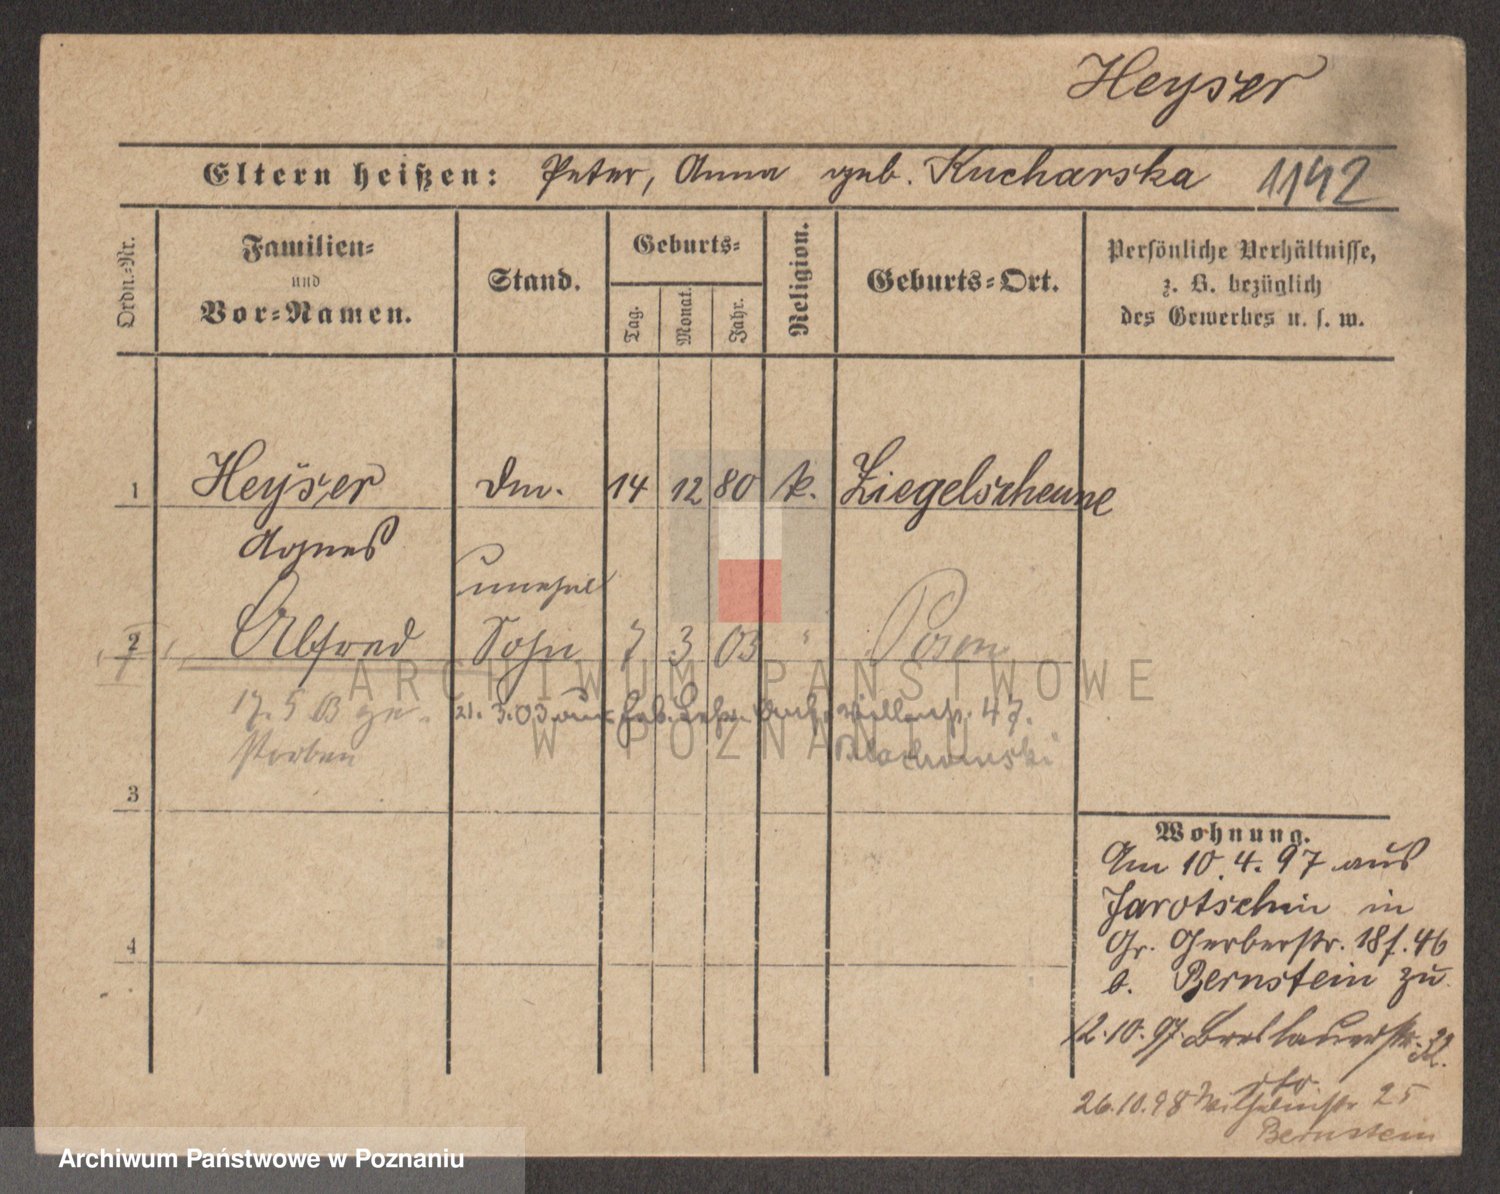 Heyser
Eltern heißen: Peter, Anna geb. Kucharska 1142
Ordn.-Nr.
Familien-
und
Vor-Namen.
Stand.
Geburts-
Tag.
Monat.
Jahr.
Religion.
Geburts-Ort.
Persönliche Verhältnisse,
z. B. bezüglich
des Gewerbes u. s. w.
1 Heyser Dm. 14 12 80 k. Ziegelscheune
Agnes
unehel
2 Alfred Sohn 7 3 03 " Posen
17. 5 03 ge-
storben
21. 3. 03 aus 47.
3
4
Wohnung.
Am 10. 4. 97 aus
Jarotschin in
Gr. Gerberstr. 18 f. 46
b. Bernstein zu
12. 10. 97. Breslauerstr.
26. 10. 98 Wilhelmstr 25
Bernstein
ARCHIWUM PAŃSTWOWE
W POZNANIU
Archiwum Państwowe w Poznaniu